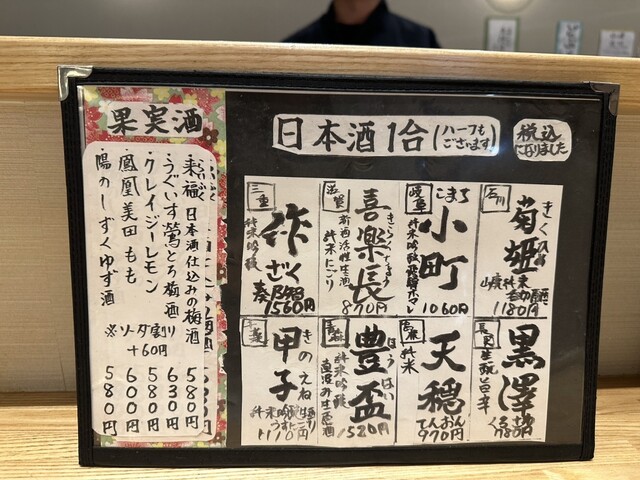 果実酒
来福 日本酒仕込みの梅酒 580円
うぐいす鶯とろ梅酒 630円
クレイジーレモン 580円
鳳凰美田 もも 600円
陽のしずくゆず酒 580円
※ソーダ割り
+60円
日本酒1合(ハーフもございます)
税込になりました
石川
きくひめ
菊姫
山廃純米
1180円
岐阜
こまち
小町
純米吟醸
1060円
滋賀
きらくちょう
喜楽長
新酒活性生酒
純米にごり
870円
三重
作
ざく
純米吟醸
奏乃智
1560円
長野
黒澤
生酛
旨辛
780円
天穏
純米
てんおん
970円
青森
ほうはい
豊盃
純米吟醸
直汲み生原酒
1520円
千葉
きのえね
甲子
純米吟醸
1110円